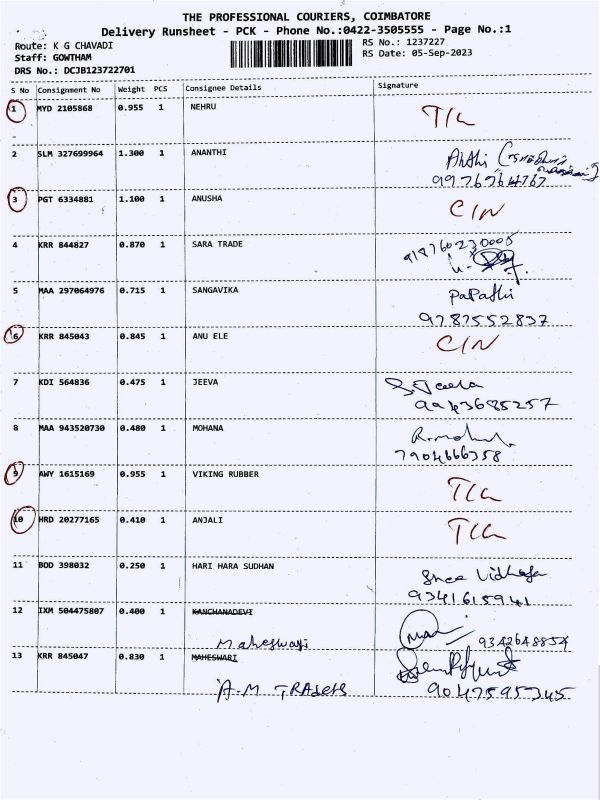 THE PROFESSIONAL COURIERS, COIMBATORE
Delivery Runsheet - PCK - Phone No.:0422-3505555 - Page No.:1
Route: K G CHAVADI
RS No.: 1237227
Staff: GOWTHAM
RS Date: 05-Sep-2023
DRS No.: DCJB123722701
S No Consignment No Weight PCS Consignee Details Signature
1 MYD 2105868 0.955 1 NEHRU
2 SLM 327699964 1.300 1 ANANTHI
3 PGT 6334881 1.100 1 ANUSHA C/N
4 KRR 844827 0.870 1 SARA TRADE
918760230005
5 MAA 297064976 0.715 1 SANGAVIKA Papathi
9787552837
6 KRR 845043 0.845 1 ANU ELE C/N
7 KDI 564836 0.475 1 JEEVA S. Jeeva
9943685257
8 MAA 943520730 0.480 1 MOHANA
7904666358
9 AWY 1615169 0.955 1 VIKING RUBBER
10 HRD 20277165 0.410 1 ANJALI
11 BOD 398032 0.250 1 HARI HARA SUDHAN
9341615941
12 IXM 504475807 0.400 1 KANCHANADEVI
Maheswari 9342648854
13 KRR 845047 0.830 1 MAHESWARI
A.M TRADERS 9047595345